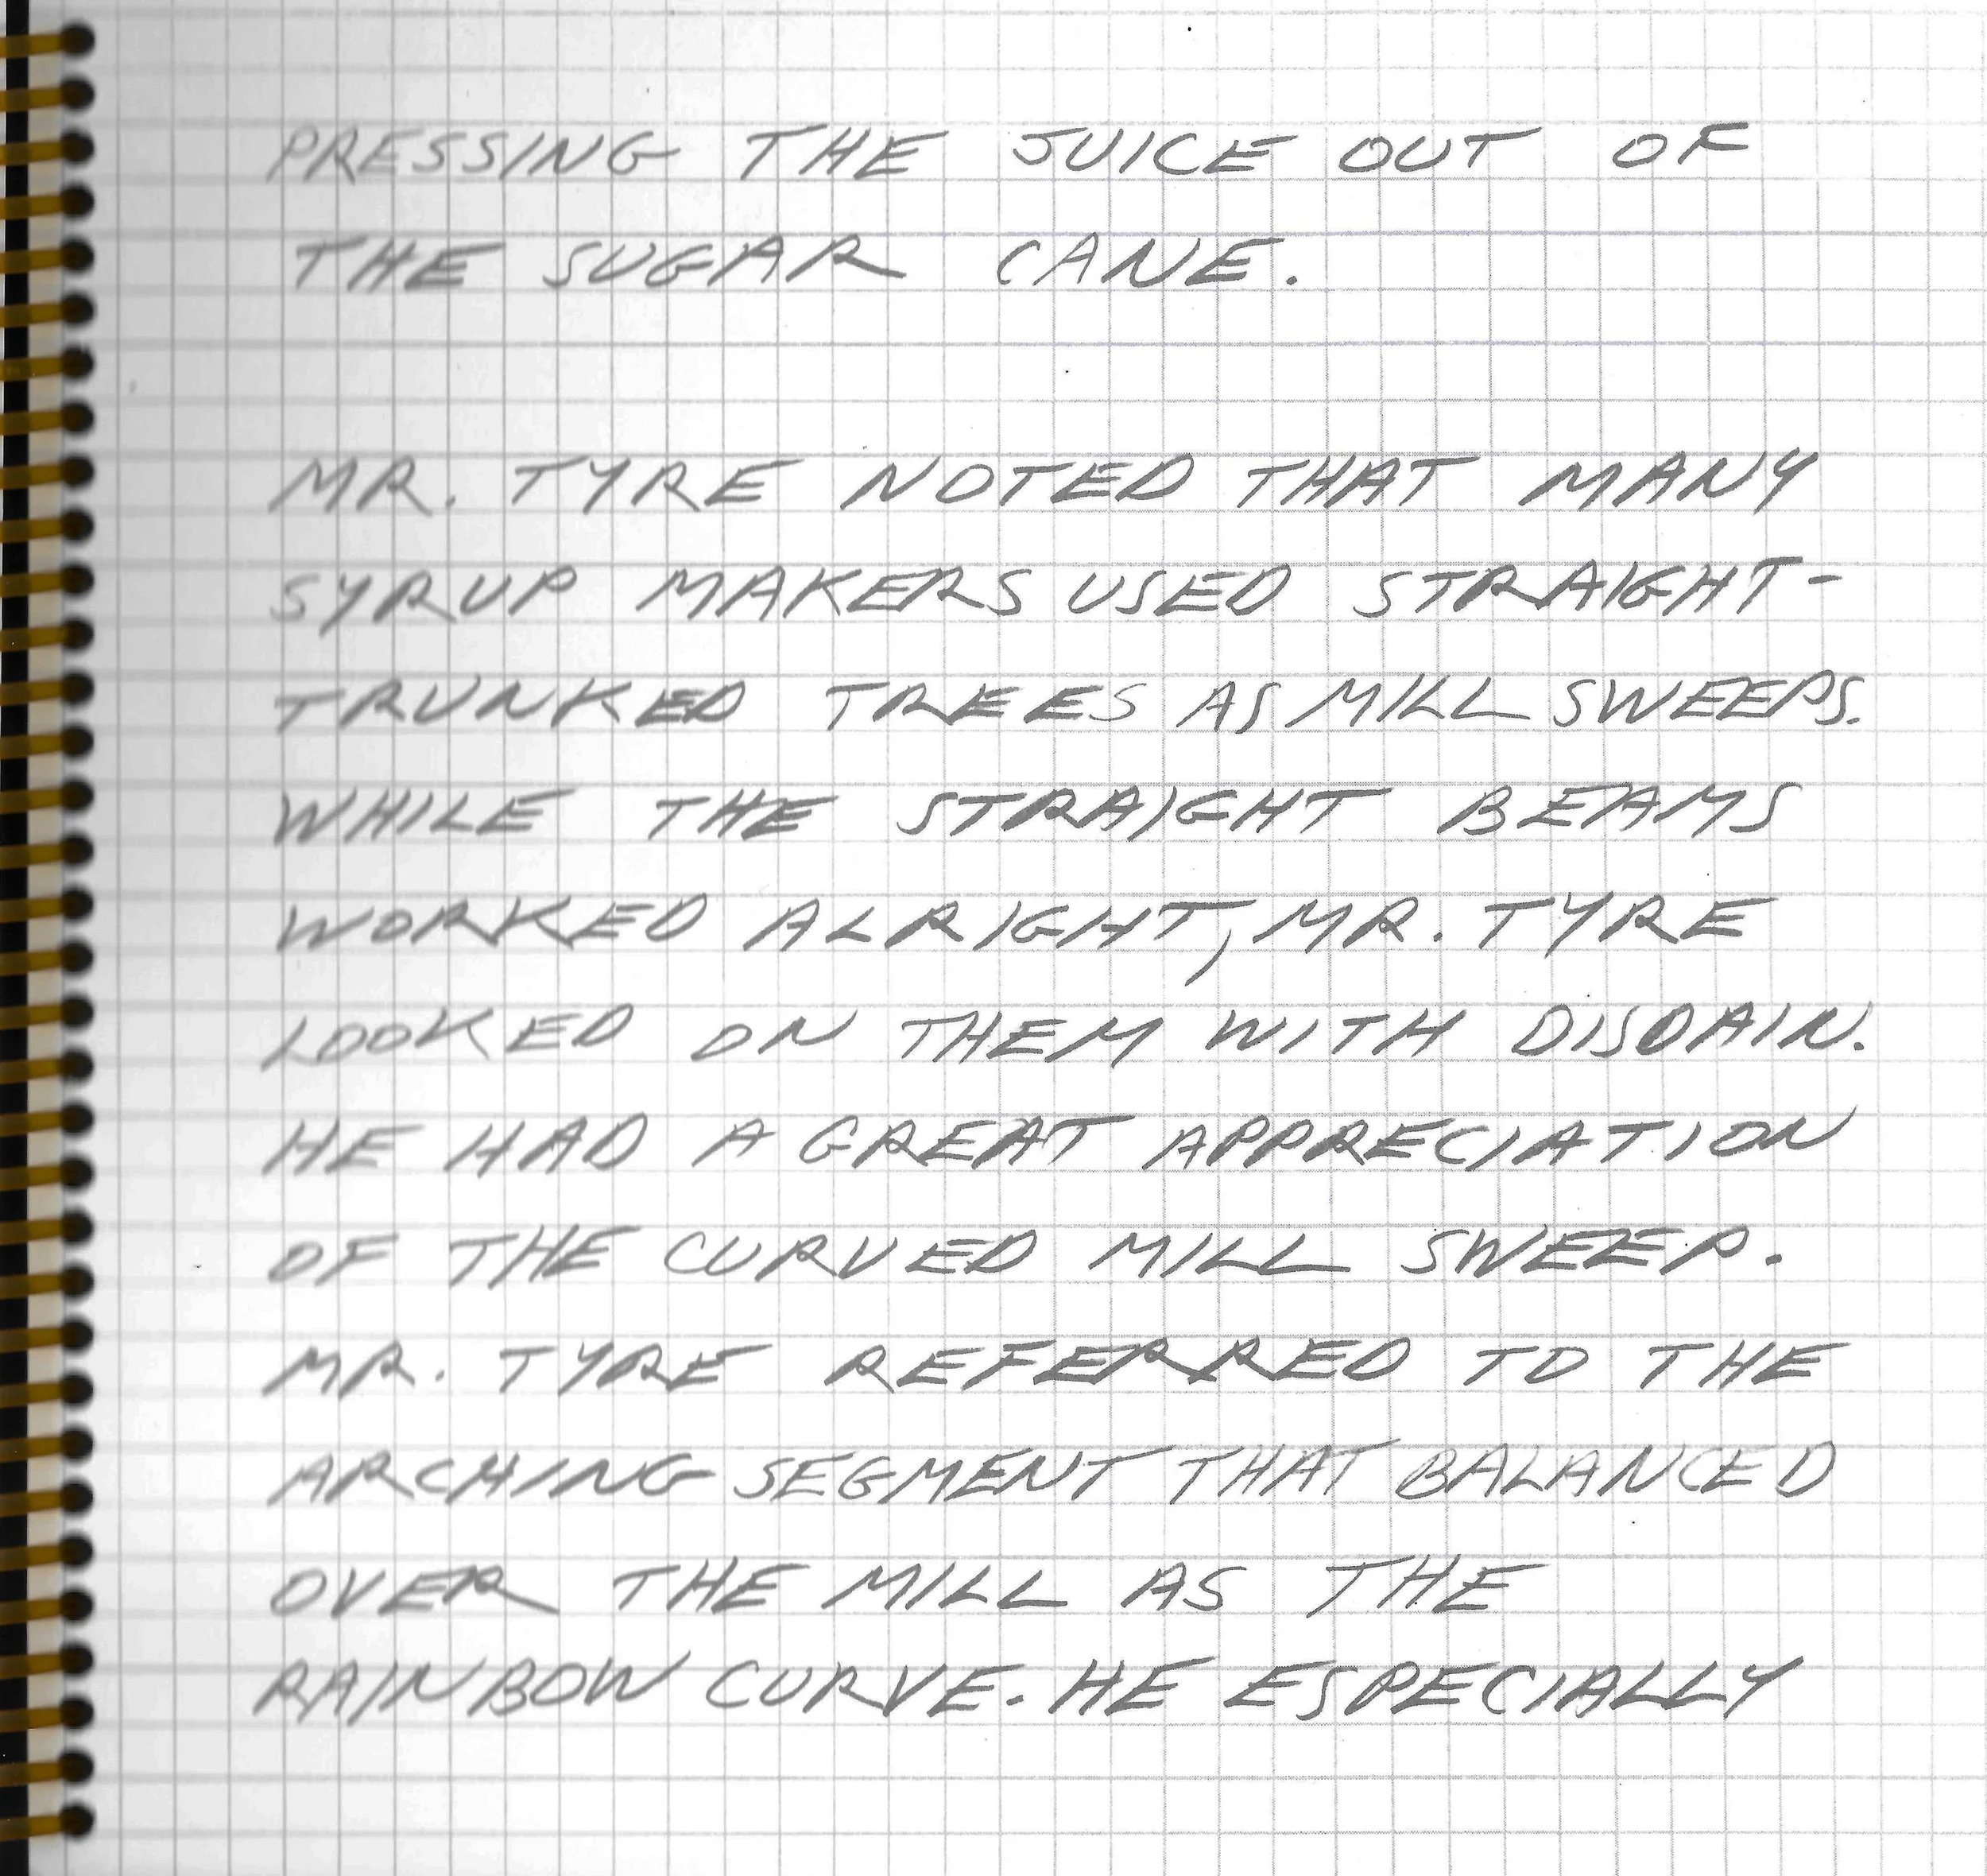 PRESSING THE JUICE OUT OF
THE SUGAR CANE.
MR. TYRE NOTED THAT MANY
SYRUP MAKERS USED STRAIGHT-
TRUNKED TREES AS MILL SWEEPS.
WHILE THE STRAIGHT BEAMS
WORKED ALRIGHT, MR. TYRE
LOOKED ON THEM WITH DISDAIN.
HE HAD A GREAT APPRECIATION
OF THE CURVED MILL SWEEP.
MR. TYRE REFERRED TO THE
ARCHING SEGMENT THAT BALANCED
OVER THE MILL AS THE
RAINBOW CURVE. HE ESPECIALLY